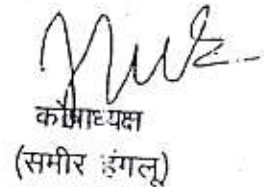 कोषाध्यक्ष
(समीर हंगलू)